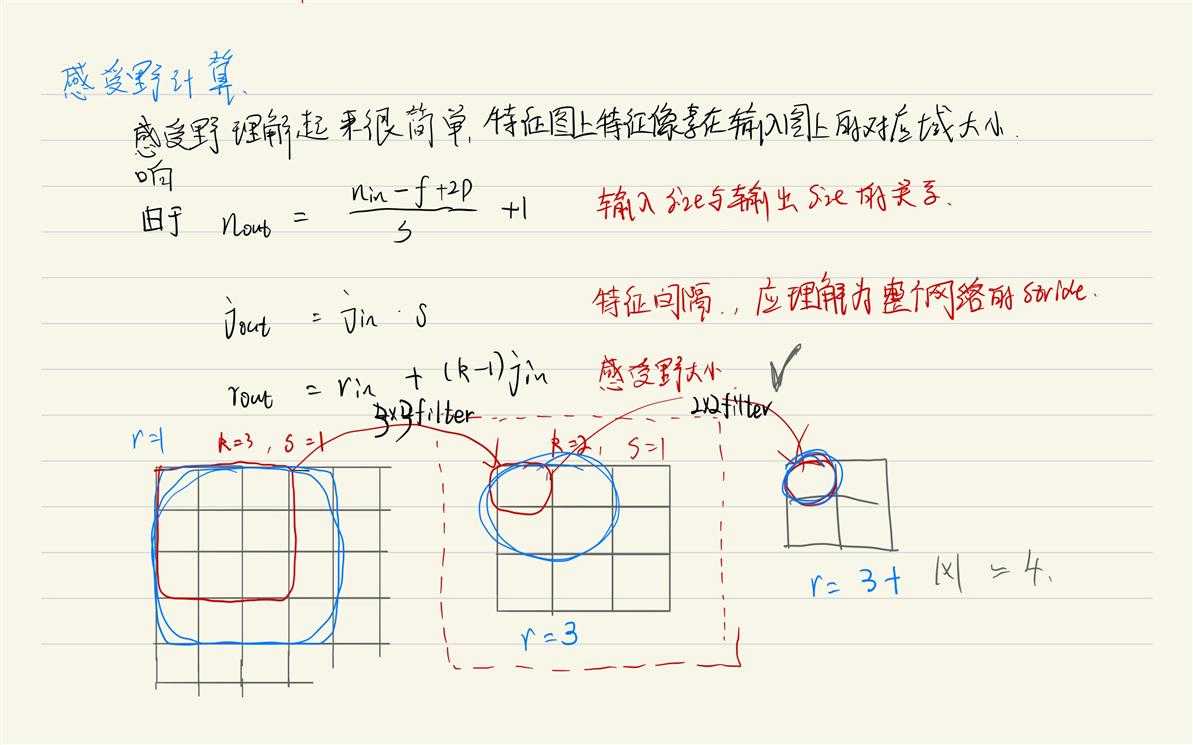 感受野计算.
感受野理解起来很简单, 特征图上特征像素在输入图上的对应域大小.
响
由于 nout = (nin - f + 2p) / s + 1 输入size与输出size的关系.
jout = jin · s 特征间隔., 应理解为整个网络的stride.
rout = rin + (k-1)jin 感受野大小 ✓
3x3filter 2x2filter
r=1 k=3, s=1 k=2, s=1
r= 3+ 1x1 = 4.
r=3